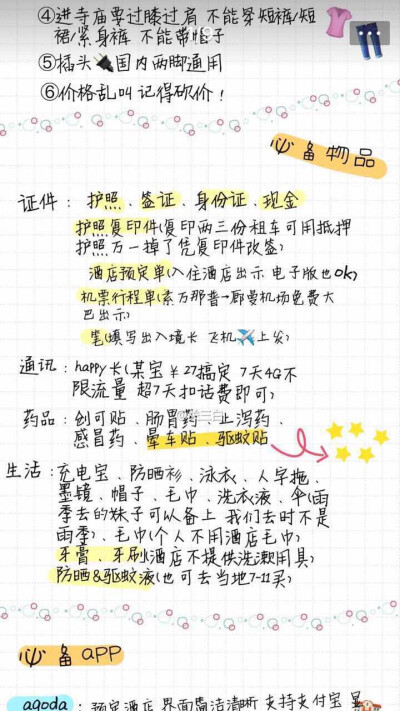 ④进寺庙要过膝过肩 不能穿短裤/短
裙/紧身裤 不能带帽子
⑤插头 国内两脚通用
⑥价格乱叫 记得砍价!
必备物品
证件: 护照、签证、身份证、现金
护照复印件(复印两三份租车可用抵押
护照万一掉了凭复印件改签)
酒店预定单(入住酒店出示 电子版也ok)
机票行程单(素万那普→廊曼机场免费大
巴出示)
笔(填写出入境卡 飞机✈上发)
通讯: happy卡(某宝¥27搞定 7天4G不
限流量 超7天扣话费即可)
药品: 创可贴、肠胃药、止泻药、
感冒药、晕车贴、驱蚊贴
生活: 充电宝、防晒衫、泳衣、人字拖、
墨镜、帽子、毛巾、洗衣液、伞(雨
季去的妹子可以备上 我们去时不是
雨季)、毛巾(个人不用酒店毛巾)
牙膏、牙刷(酒店不提供洗漱用具)
防晒&驱蚊液(也可去当地7-11买)
必备APP
agoda: 预定酒店 界面简洁清晰 支持支付宝